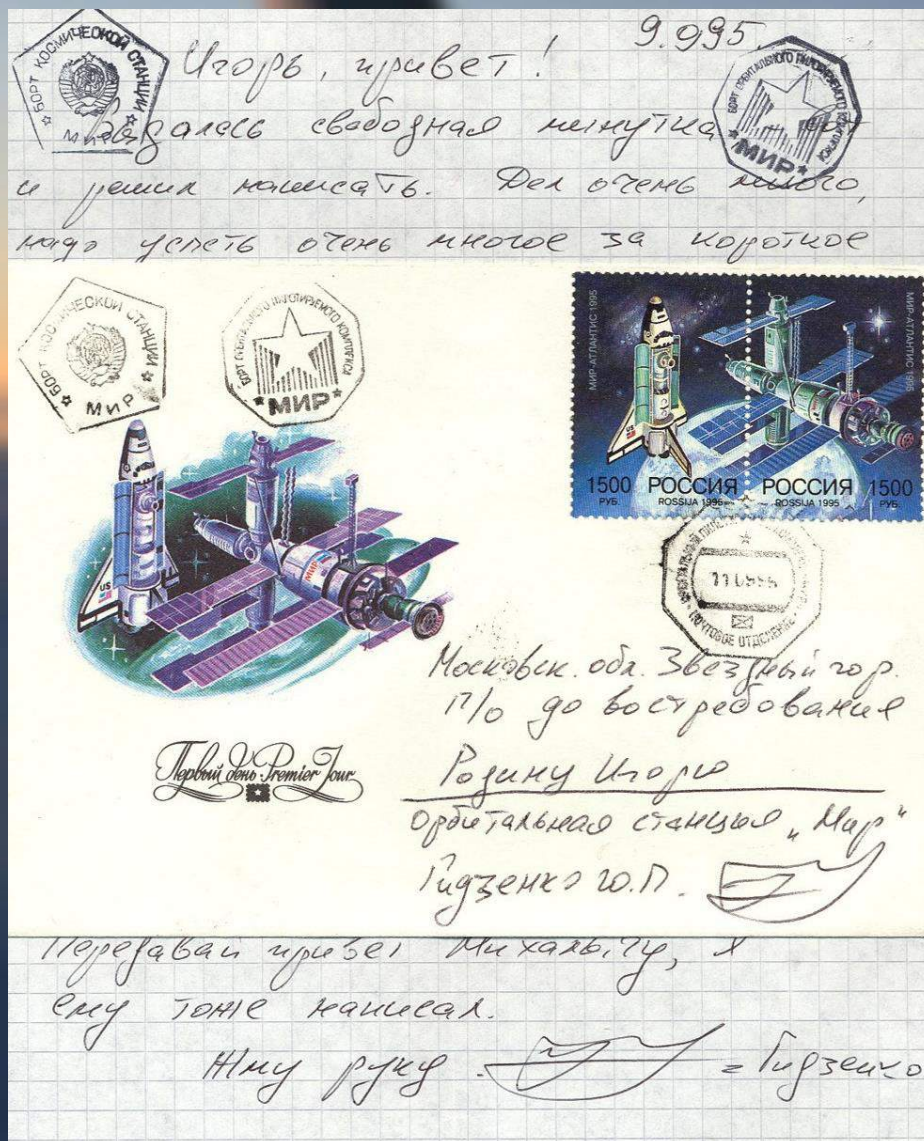 9.9.95.
БОРТ КОСМИЧЕСКОЙ СТАНЦИИ МИР
Игорь, привет!
БОРТ ОРБИТАЛЬНОГО ПИЛОТИРУЕМОГО КОМПЛЕКСА МИР
свободная минутка
и решил написать. Дел очень много,
надо успеть очень многое за короткое
БОРТ КОСМИЧЕСКОЙ СТАНЦИИ МИР
БОРТ ОРБИТАЛЬНОГО ПИЛОТИРУЕМОГО КОМПЛЕКСА МИР
МИР-АТЛАНТИС 1995
МИР-АТЛАНТИС 1995
1500 РУБ. РОССИЯ ROSSIJA 1995
РОССИЯ ROSSIJA 1995 1500 РУБ.
ПОЧТОВОЕ ОТДЕЛЕНИЕ
US
МИР
Московск. обл. Звездный гор.
П/о до востребования
Родину Игорю
Орбитальная станция „Мир"
Гидзенко Ю.П.
Первый день Premier Jour
Передавай привет Михалычу, я
ему тоже написал.
Жму руку = Гидзенко